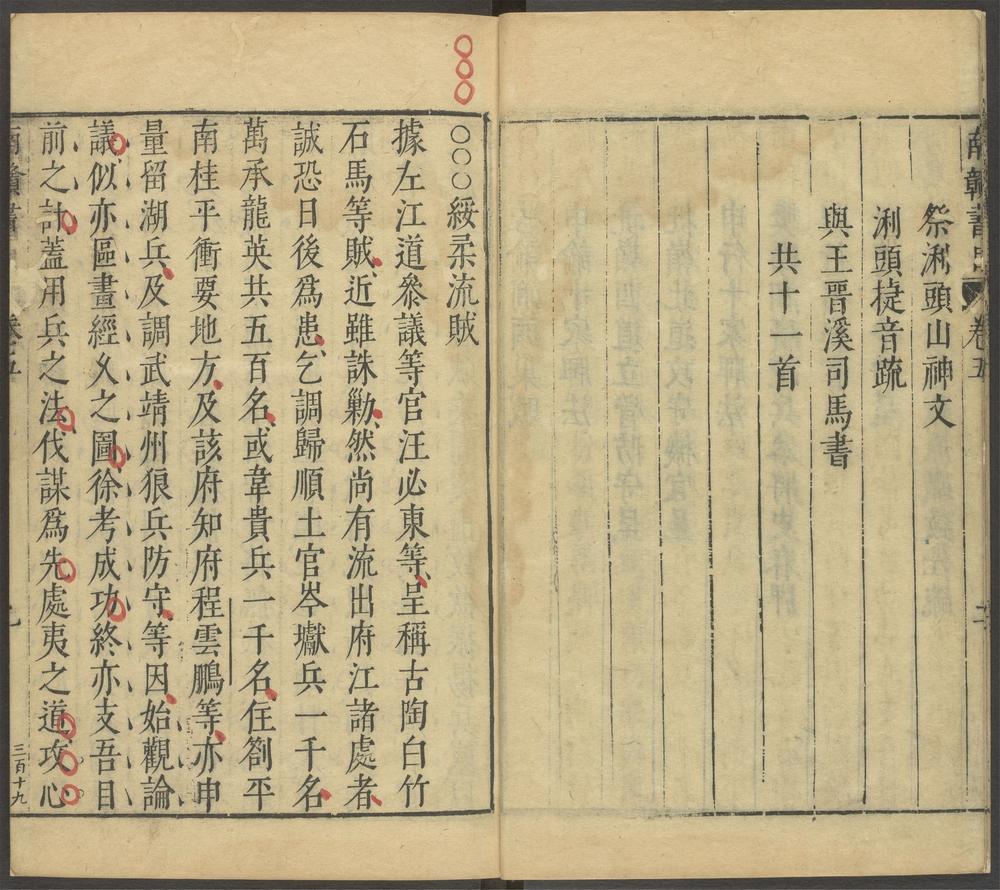 祭浰頭山神文
浰頭㨗音疏
與王晋溪司馬書
共十一首
卷五
二
〇〇〇綏柔流賊
據左江道叅議等官汪必東等呈稱古陶白竹
石馬等賊近雖誅勦然尚有流出府江諸處者
誠恐日後爲患乞調歸順土官岑瓛兵一千名
萬承龍英共五百名或韋貴兵一千名住劄平
南桂平衝要地方及該府知府程雲鵬等亦申
量留湖兵及調武靖州狼兵防守等因始觀論
議似亦區畫經乆之圖徐考成功終亦支吾目
前之計蓋用兵之法伐謀爲先處夷之道攻心
三百十九